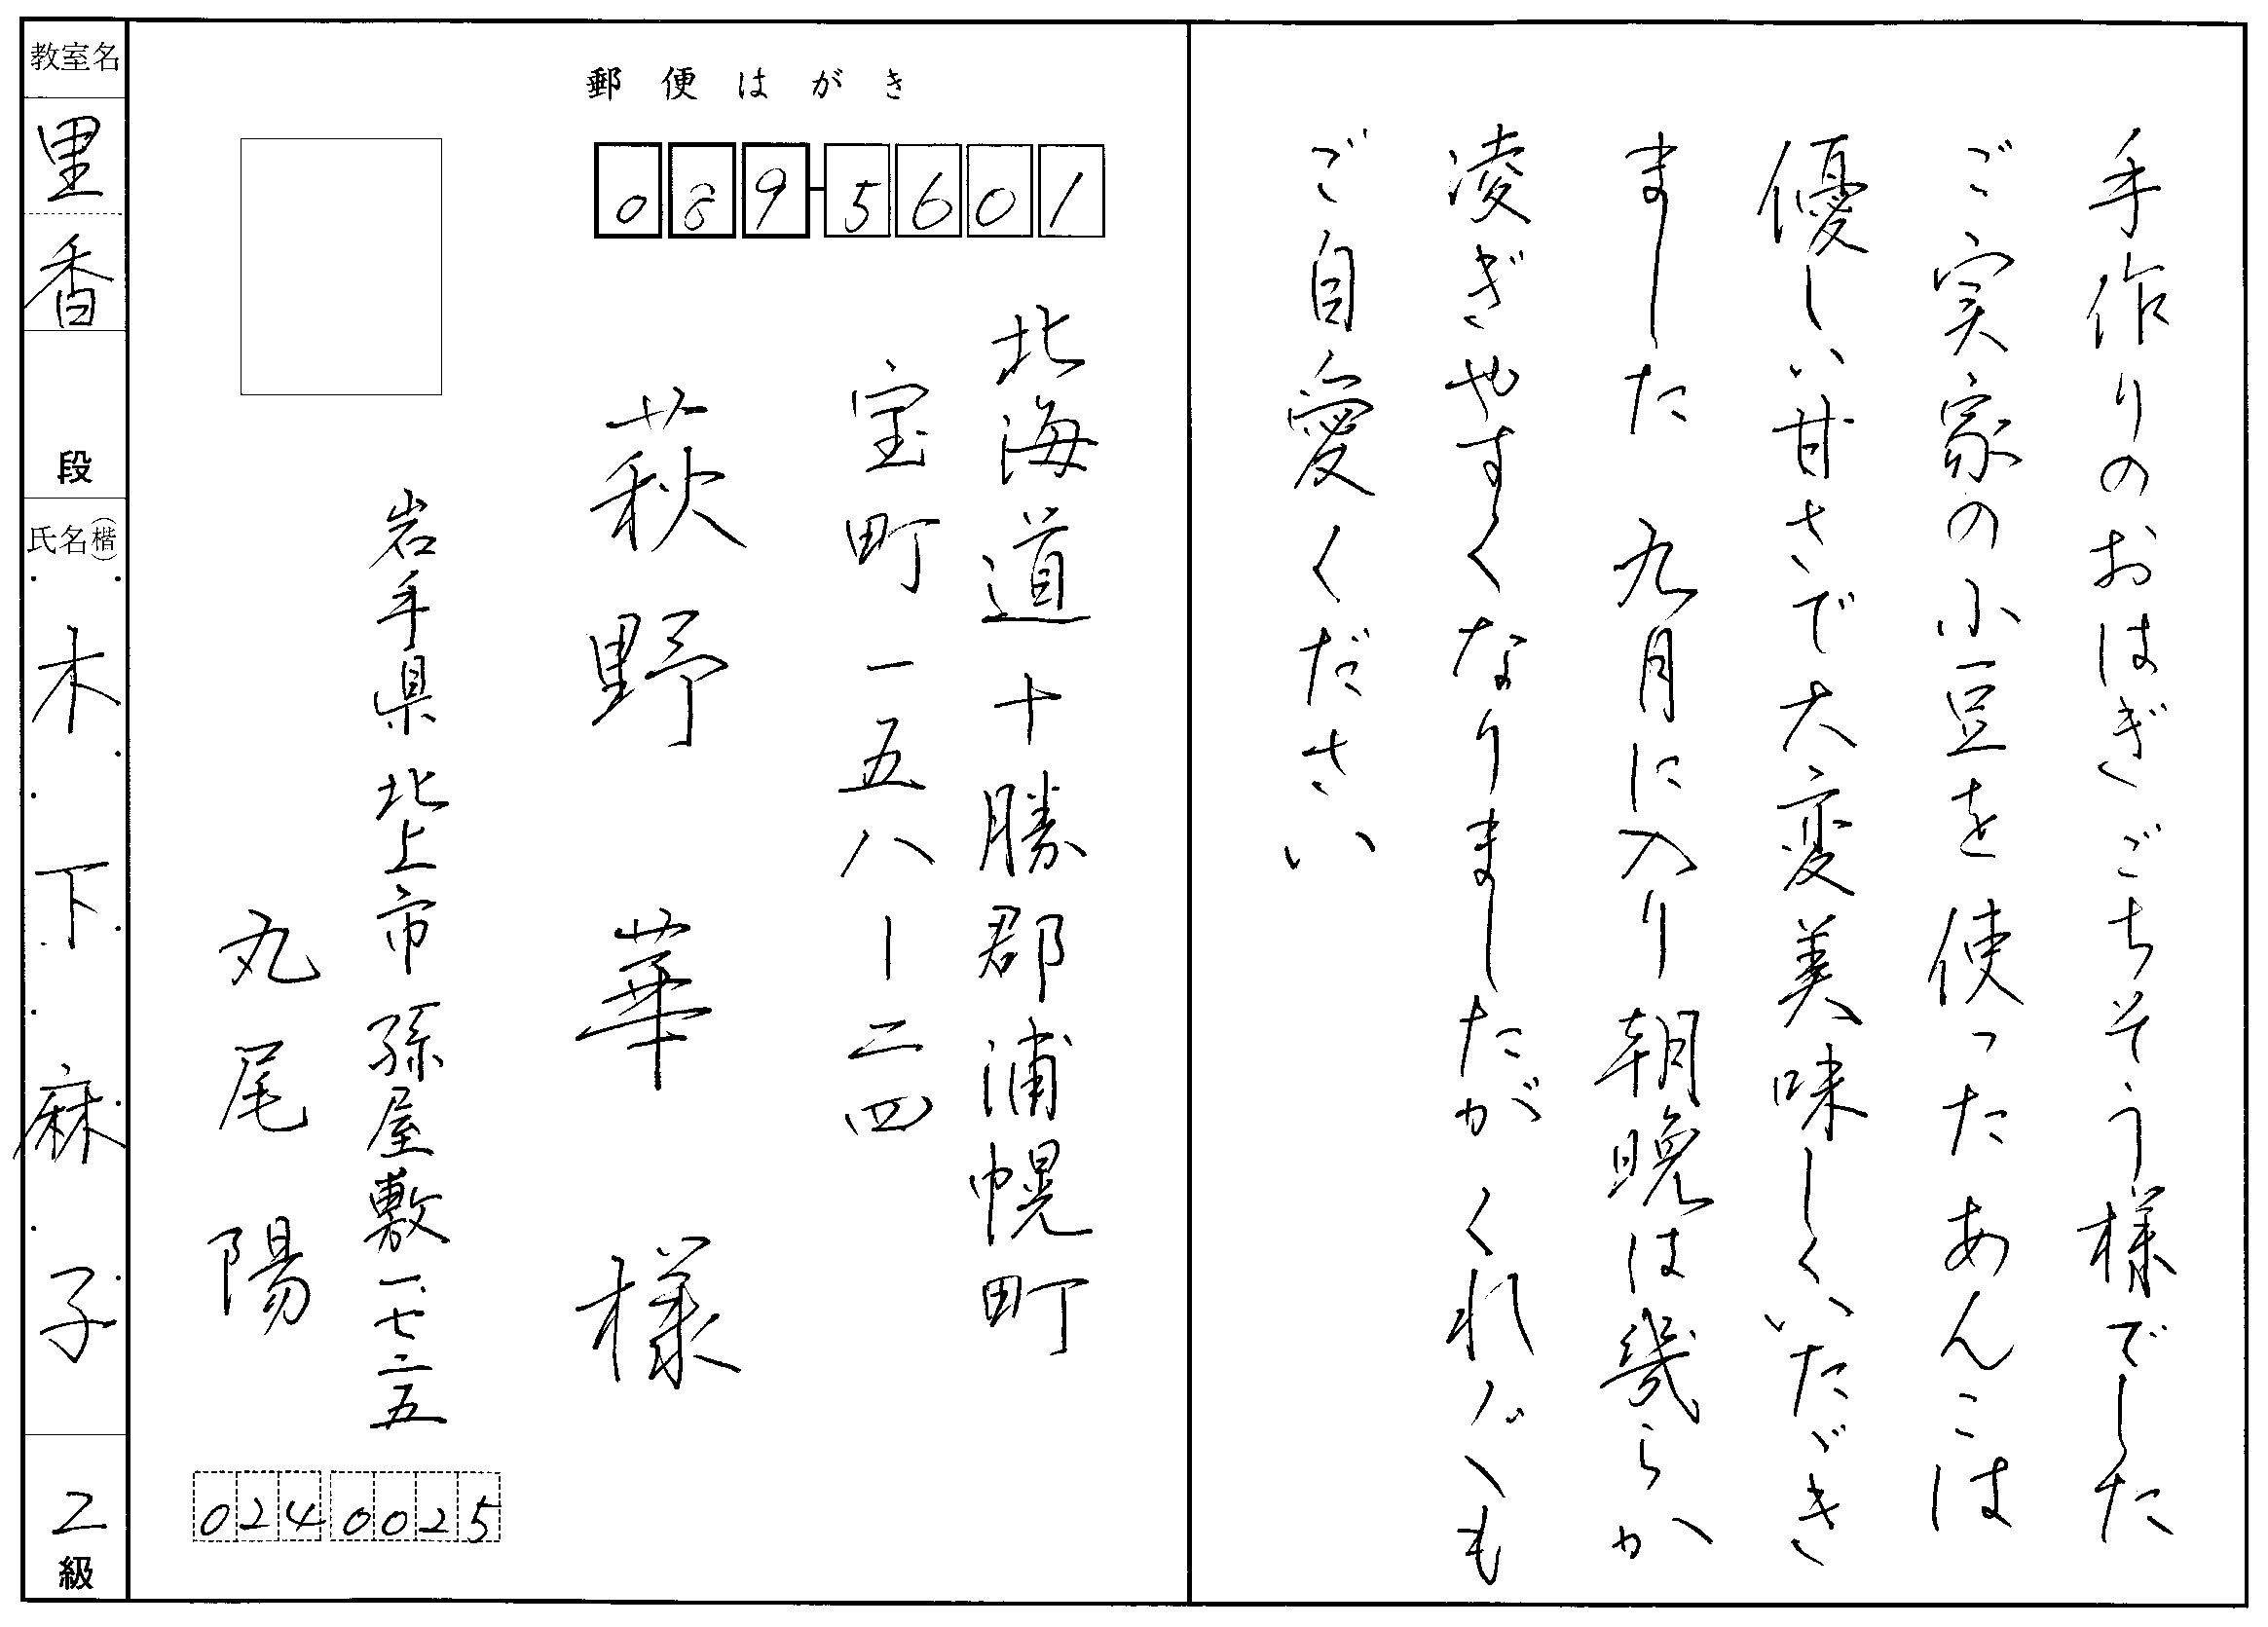 手作りのおはぎごちそう様でした
ご実家の小豆を使ったあんこは
優しい甘さで大変美味しくいただき
ました 九月に入り朝晩は幾らか
凌ぎやすくなりましたがくれぐれも
ご自愛ください
郵便はがき
089-5601
北海道十勝郡浦幌町
宝町一五八ー二四
萩野 華 様
岩手県北上市孫屋敷一七ー二五
丸尾 陽
024 0025
教室名
里香
段
氏名(楷)
木下麻子
2
級